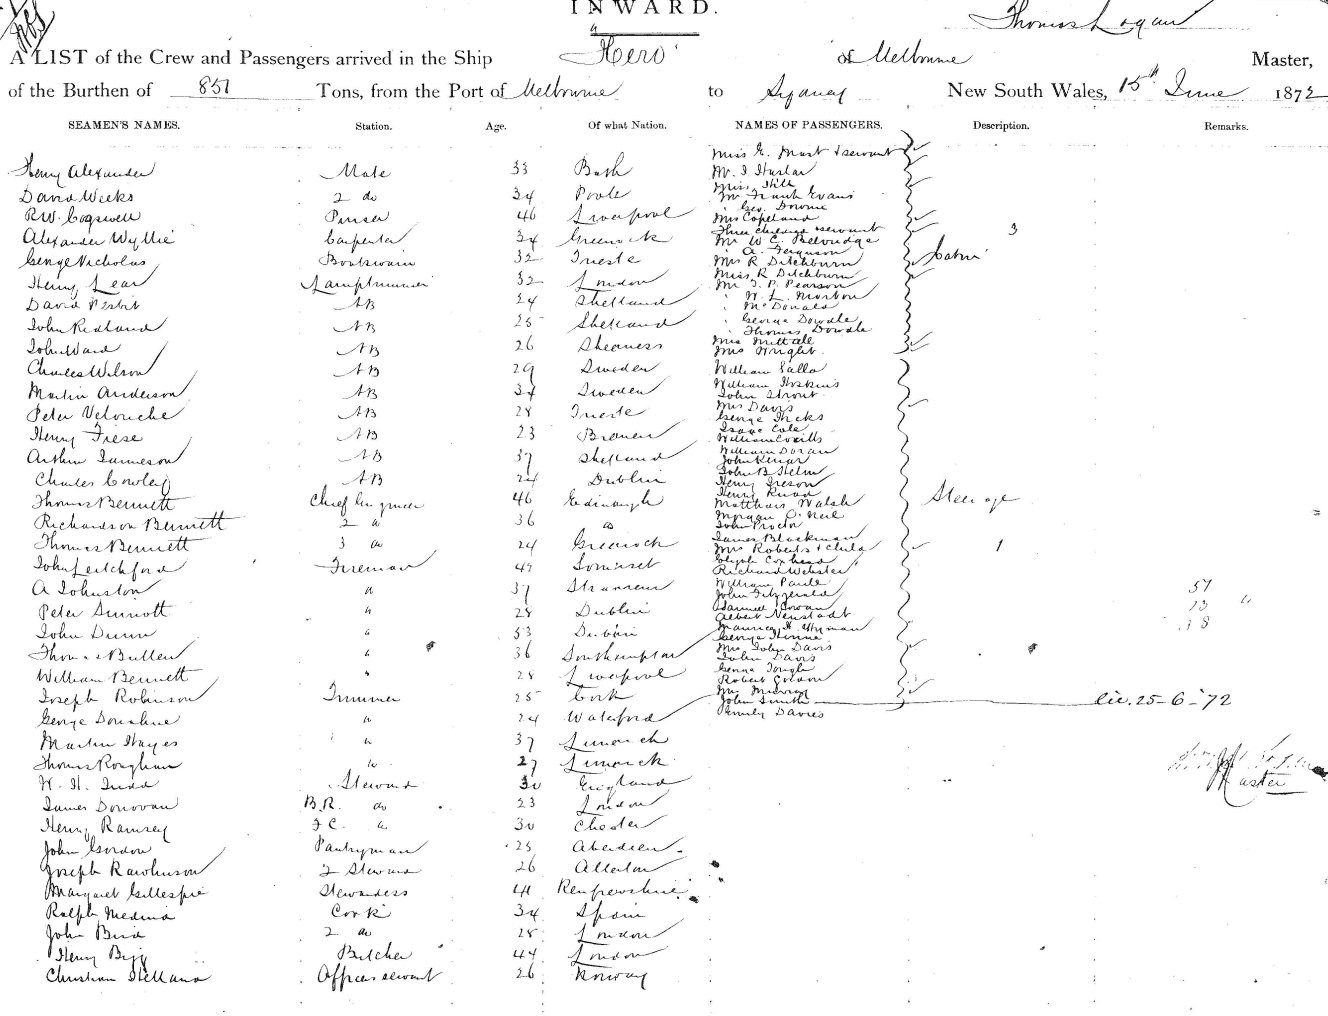 INWARD.
Thomas Logan
A LIST of the Crew and Passengers arrived in the Ship Hero of Melbourne Master,
of the Burthen of 851 Tons, from the Port of Melbourne to Sydney New South Wales, 15th June 1872
SEAMEN'S NAMES. Station. Age. Of what Nation. NAMES OF PASSENGERS. Description. Remarks.
Henry Alexander Mate 33 Bath
David Weeks 2 do 34 Poole
R.W. Cogswell Purser 46 Liverpool
Alexander Wyllie Carpenter 34 Greenock
George Nicholas Boatswain 32 Trieste
Henry Lear Lamptrimmer 32 London
David Nesbit AB 24 Shetland
John Redland AB 25 Shetland
John Ward AB 26 Sheerness
Charles Wilson AB 29 Sweden
Martin Anderson AB 34 Sweden
Peter Velouche AB 28 Trieste
Henry Friese AB 23 Bremen
Arthur Jameson AB 37 Shetland
Charles Cowley AB 24 Dublin
Thomas Bennett Chief Engineer 46 Edinburgh
Richardson Bennett 2 do 36 do
Thomas Bennett 3 do 24 Greenock
John Leitchford Fireman Somerset
A Johnston " 37 Stranraer
Peter Sinnott " 28 Dublin
John Dunn " 53 Dublin
Thomas Bullen " 36 Southampton
William Bennett " 28 Liverpool
Joseph Robinson Trimmer 25 Cork
George Donohue " 24 Waterford
Martin Hayes " 37 Limerick
Thomas Roughan " 27 Limerick
W. H. Judd Steward 30 England
James Donovan B.R. do 23 London
Henry Ramsey F.C. do 30 Chester
John Gordon Pantryman 25 Aberdeen
Joseph Rawlinson 2 Steward 26
Margaret Gillespie Stewardess 41 Renfrewshire
Ralph Medina Cook 34 Spain
John Bird 2 do 28 London
Henry Bigg Butcher 44 London
Christian Officers servant 26 Norway
Miss E. & servant
Mr. J
Miss Hill
Mr Frank Evans
" Geo. Downie
Mrs Copeland
Three children & servant 3
Mr W C Belbridge
" A. Ferguson
Mrs R Ditchburn Cabin
Miss R Ditchburn
Mr T. P. Pearson
" W. L. Morton
" McDonald
" George Dowdle
" Thomas Dowdle
Mrs
Mrs Wright
William
William Hoskins
John Strout
Mrs Davis
George Hicks
Isaac Cole
William
William Doran
John
John B Helm
Henry Ireson
Henry
Matthais Walsh Steerage
Morgan O'Neil
John Proctor
James Blackman
Mrs Roberts & child 1
Richard Webster
William 57
John Fitzgerald
Samuel Cowan 13 "
Albert Neustadt
Maurice H. Hyman 18
George
Mrs John Davis
John Davis
George Tough
Robert Gordon
Mr Murray
John Smith lic. 25-6-72
Emily Davies
Master